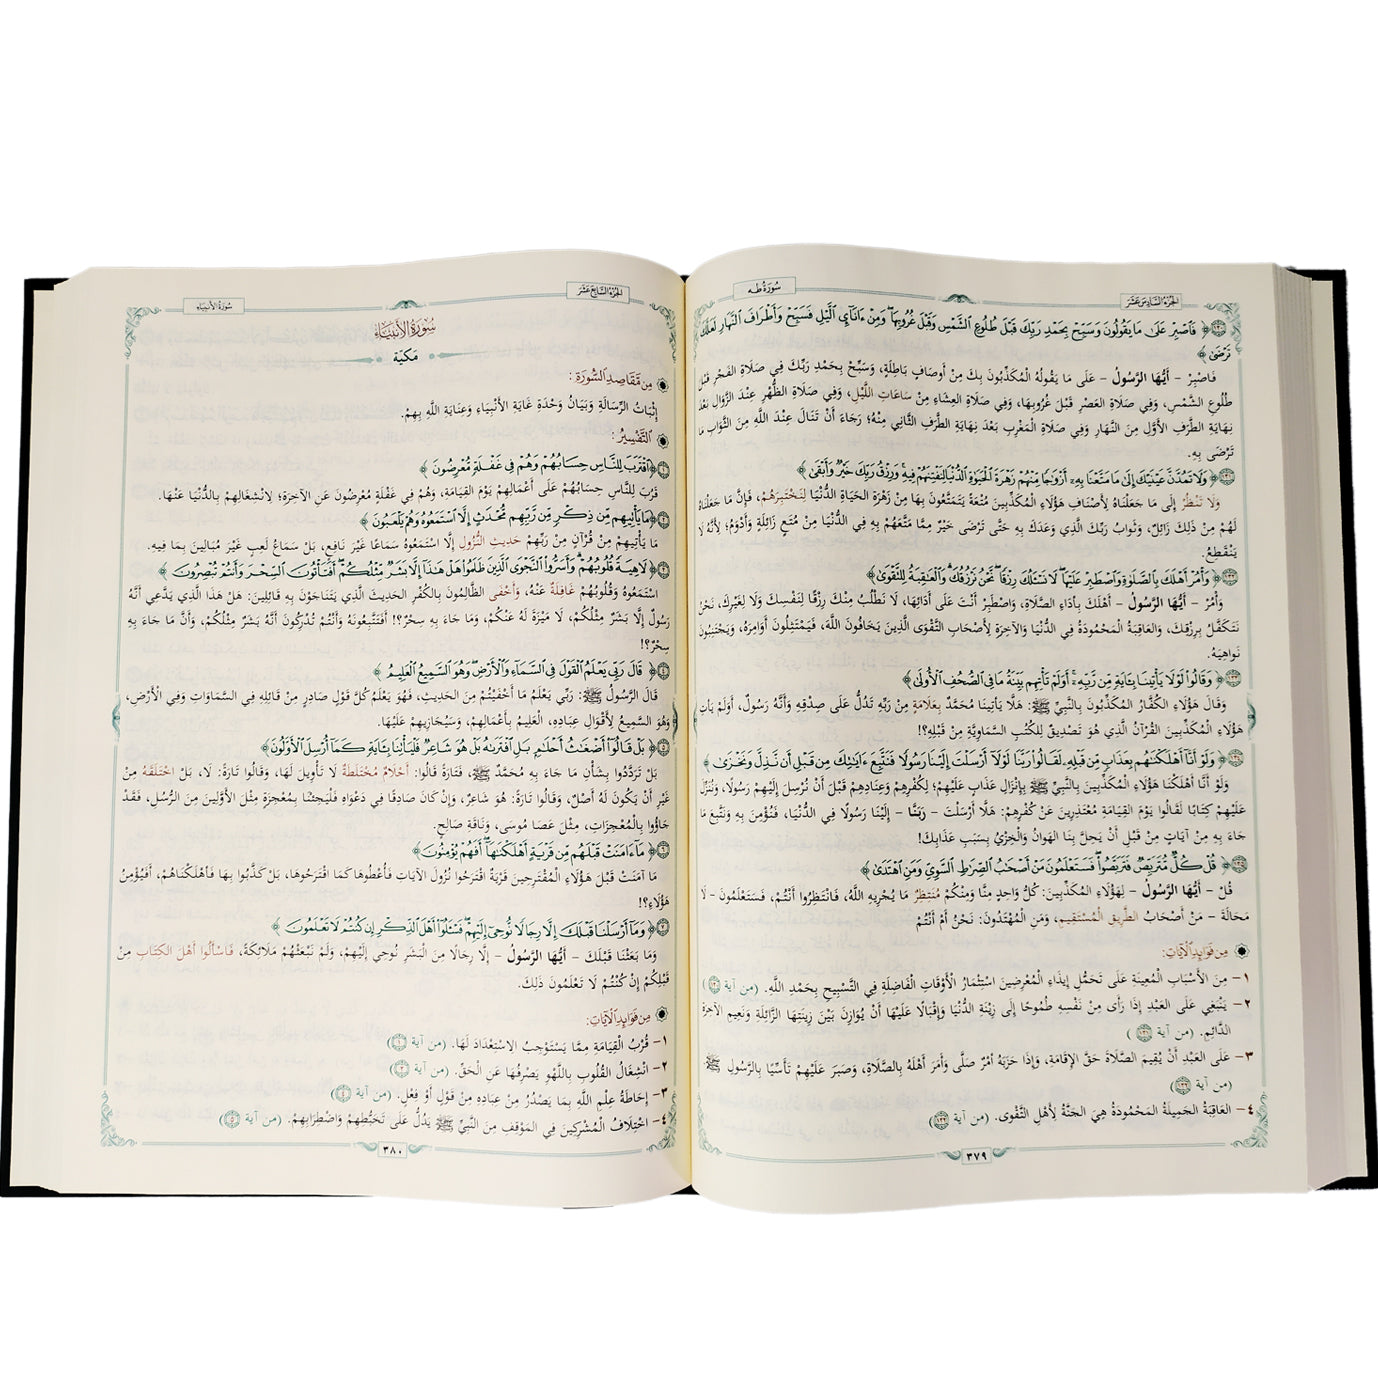 الجزء السادس عشر
سورة طه
﴿ فَاصْبِرْ عَلَىٰ مَا يَقُولُونَ وَسَبِّحْ بِحَمْدِ رَبِّكَ قَبْلَ طُلُوعِ الشَّمْسِ وَقَبْلَ غُرُوبِهَا ۖ وَمِنْ ءَانَآئِ الَّيْلِ فَسَبِّحْ وَأَطْرَافَ النَّهَارِ لَعَلَّكَ
تَرْضَىٰ ﴾
فَاصْبِرْ - أَيُّهَا الرَّسُولُ - عَلَى مَا يَقُولُهُ الْمُكَذِّبُونَ بِكَ مِنْ أَوصَافٍ بَاطِلَةٍ، وَسَبِّحْ بِحَمْدِ رَبِّكَ فِي صَلَاةِ الفَجْرِ قَبْلَ
طُلُوعِ الشَّمْسِ، وَفِي صَلَاةِ العَصْرِ قَبْلَ غُرُوبِهَا، وَفِي صَلَاةِ العِشَاءِ مِنْ سَاعَاتِ اللَّيْلِ، وَفِي صَلَاةِ الظُّهْرِ عِنْدَ الزَّوَالِ بَعْدَ
نِهَايَةِ الطَّرَفِ الأَوَّلِ مِنَ النَّهَارِ وَفِي صَلَاةِ المَغْرِبِ بَعْدَ نِهَايَةِ الطَّرَفِ الثَّانِي مِنْهُ؛ رَجَاءَ أَنْ تَنَالَ عِنْدَ اللَّهِ مِنَ الثَّوَابِ مَا
تَرْضَى بِهِ.
﴿ وَلَا تَمُدَّنَّ عَيْنَيْكَ إِلَىٰ مَا مَتَّعْنَا بِهِۦ أَزْوَٰجًا مِّنْهُمْ زَهْرَةَ الْحَيَوٰةِ الدُّنْيَا لِنَفْتِنَهُمْ فِيهِ ۚ وَرِزْقُ رَبِّكَ خَيْرٌ وَأَبْقَىٰ ﴾
وَلَا تَنْظُرْ إِلَى مَا جَعَلْنَاهُ لِأَصْنَافِ هَؤُلَاءِ الْمُكَذِّبِينَ مُتْعَةً يَتَمَتَّعُونَ بِهَا مِنْ زَهْرَةِ الحَيَاةِ الدُّنْيَا لِنَخْتَبِرَهُمْ، فَإِنَّ مَا جَعَلْنَاهُ
لَهُمْ مِنْ ذَلِكَ زَائِلٌ، وَثَوَابُ رَبِّكَ الَّذِي وَعَدَكَ بِهِ حَتَّى تَرْضَى خَيْرٌ مِمَّا مَتَّعَهُمْ بِهِ فِي الدُّنْيَا مِنْ مُتَعٍ زَائِلَةٍ وَأَدْوَمُ؛ لِأَنَّهُ لَا
يَنْقَطِعُ.
﴿ وَأْمُرْ أَهْلَكَ بِالصَّلَوٰةِ وَاصْطَبِرْ عَلَيْهَا ۖ لَا نَسْـَٔلُكَ رِزْقًا ۖ نَّحْنُ نَرْزُقُكَ ۗ وَالْعَٰقِبَةُ لِلتَّقْوَىٰ ﴾
وَأْمُرْ - أَيُّهَا الرَّسُولُ - أَهْلَكَ بِأَدَاءِ الصَّلَاةِ، وَاصْطَبِرْ أَنْتَ عَلَى أَدَائِهَا، لَا نَطْلُبُ مِنْكَ رِزْقًا لِنَفْسِكَ وَلَا لِغَيْرِكَ، نَحْنُ
نَتَكَفَّلُ بِرِزْقِكَ، وَالعَاقِبَةُ الْمَحْمُودَةُ فِي الدُّنْيَا وَالآخِرَةِ لِأَصْحَابِ التَّقْوَى الَّذِينَ يَخَافُونَ اللَّهَ، فَيَمْتَثِلُونَ أَوَامِرَهُ، وَيَجْتَنِبُونَ
نَوَاهِيَهُ.
﴿ وَقَالُوا لَوْلَا يَأْتِينَا بِـَٔايَةٍ مِّن رَّبِّهِۦٓ ۚ أَوَلَمْ تَأْتِهِم بَيِّنَةُ مَا فِي الصُّحُفِ الْأُولَىٰ ﴾
وَقَالَ هَؤُلَاءِ الكُفَّارُ الْمُكَذِّبُونَ بِالنَّبِيِّ ﷺ: هَلَّا يَأْتِينَا مُحَمَّدٌ بِعَلَامَةٍ مِنْ رَبِّهِ تَدُلُّ عَلَى صِدْقِهِ وَأَنَّهُ رَسُولٌ، أَوَلَمْ يَأْتِ
هَؤُلَاءِ الْمُكَذِّبِينَ القُرْآنُ الَّذِي هُوَ تَصْدِيقٌ لِلكُتُبِ السَّمَاوِيَّةِ مِنْ قَبْلِهِ؟!
﴿ وَلَوْ أَنَّآ أَهْلَكْنَٰهُم بِعَذَابٍ مِّن قَبْلِهِۦ لَقَالُوا رَبَّنَا لَوْلَآ أَرْسَلْتَ إِلَيْنَا رَسُولًا فَنَتَّبِعَ ءَايَٰتِكَ مِن قَبْلِ أَن نَّذِلَّ وَنَخْزَىٰ ﴾
وَلَوْ أَنَّا أَهْلَكْنَا هَؤُلَاءِ الْمُكَذِّبِينَ بِالنَّبِيِّ ﷺ بِإِنْزَالِ عَذَابٍ عَلَيْهِمْ؛ لِكُفْرِهِمْ وَعِنَادِهِمْ قَبْلَ أَنْ نُرْسِلَ إِلَيْهِمْ رَسُولًا، وَنُنَزِّلَ
عَلَيْهِمْ كِتَابًا لَقَالُوا يَوْمَ القِيَامَةِ مُعْتَذِرِينَ عَنْ كُفْرِهِمْ: هَلَّا أَرْسَلْتَ - رَبَّنَا - إِلَيْنَا رَسُولًا فِي الدُّنْيَا، فَنُؤْمِنَ بِهِ وَنَتَّبِعَ مَا
جَاءَ بِهِ مِنْ آيَاتٍ مِنْ قَبْلِ أَنْ يَحِلَّ بِنَا الهَوَانُ وَالْخِزْيُ بِسَبَبِ عَذَابِكَ!
﴿ قُلْ كُلٌّ مُّتَرَبِّصٌ فَتَرَبَّصُوا ۖ فَسَتَعْلَمُونَ مَنْ أَصْحَٰبُ الصِّرَٰطِ السَّوِيِّ وَمَنِ اهْتَدَىٰ ﴾
قُلْ - أَيُّهَا الرَّسُولُ - لِهَؤُلَاءِ الْمُكَذِّبِينَ: كُلُّ وَاحِدٍ مِنَّا وَمِنْكُمْ مُنْتَظِرٌ مَا يُجْرِيهِ اللَّهُ، فَانْتَظِرُوا أَنْتُمْ، فَسَتَعْلَمُونَ - لَا
مَحَالَةَ - مَنْ أَصْحَابُ الطَّرِيقِ الْمُسْتَقِيمِ، وَمَنِ الْمُهْتَدُونَ: نَحْنُ أَمْ أَنْتُمْ
مِن فَوَائِدِ الآيَاتِ:
١- مِنَ الأَسْبَابِ الْمُعِينَةِ عَلَى تَحَمُّلِ إِيذَاءِ الْمُعْرِضِينَ اسْتِثْمَارُ الأَوْقَاتِ الْفَاضِلَةِ فِي التَّسْبِيحِ بِحَمْدِ اللَّهِ. (من آية ١٣٠)
٢- يَنْبَغِي عَلَى العَبْدِ إِذَا رَأَى مِنْ نَفْسِهِ طُمُوحًا إِلَى زِينَةِ الدُّنْيَا وَإِقْبَالًا عَلَيْهَا أَنْ يُوَازِنَ بَيْنَ زِينَتِهَا الزَّائِلَةِ وَنَعِيمِ الآخِرَةِ
الدَّائِمِ. (من آية ١٣١)
٣- عَلَى العَبْدِ أَنْ يُقِيمَ الصَّلَاةَ حَقَّ الإِقَامَةِ، وَإِذَا حَزَبَهُ أَمْرٌ صَلَّى وَأَمَرَ أَهْلَهُ بِالصَّلَاةِ، وَصَبَرَ عَلَيْهِمْ تَأَسِّيًا بِالرَّسُولِ ﷺ
(من آية ١٣٢)
٤- العَاقِبَةُ الجَمِيلَةُ المَحْمُودَةُ هِيَ الجَنَّةُ لِأَهْلِ التَّقْوَى. (من آية ١٣٢)
٣٧٩
الجزء السابع عشر
سورة الأنبياء
سورة الأنبياء
مَكِّيَّة
مِن مَّقَاصِدِ السُّورَةِ:
إِثْبَاتُ الرِّسَالَةِ وَبَيَانُ وَحْدَةِ غَايَةِ الأَنْبِيَاءِ وَعِنَايَةِ اللَّهِ بِهِمْ.
التَّفْسِيرُ:
﴿ اقْتَرَبَ لِلنَّاسِ حِسَابُهُمْ وَهُمْ فِي غَفْلَةٍ مُّعْرِضُونَ ﴾
قَرُبَ لِلنَّاسِ حِسَابُهُمْ عَلَى أَعْمَالِهِمْ يَوْمَ القِيَامَةِ، وَهُمْ فِي غَفْلَةٍ مُعْرِضُونَ عَنِ الآخِرَةِ؛ لِانْشِغَالِهِمْ بِالدُّنْيَا عَنْهَا.
﴿ مَا يَأْتِيهِم مِّن ذِكْرٍ مِّن رَّبِّهِم مُّحْدَثٍ إِلَّا اسْتَمَعُوهُ وَهُمْ يَلْعَبُونَ ﴾
مَا يَأْتِيهِمْ مِنْ قُرْآنٍ مِنْ رَبِّهِمْ حَدِيثِ النُّزُولِ إِلَّا اسْتَمَعُوهُ سَمَاعًا غَيْرَ نَافِعٍ، بَلْ سَمَاعُ لَعِبٍ غَيْرَ مُبَالِينَ بِمَا فِيهِ.
﴿ لَاهِيَةً قُلُوبُهُمْ ۗ وَأَسَرُّوا النَّجْوَى الَّذِينَ ظَلَمُوا هَلْ هَٰذَآ إِلَّا بَشَرٌ مِّثْلُكُمْ ۖ أَفَتَأْتُونَ السِّحْرَ وَأَنتُمْ تُبْصِرُونَ ﴾
اسْتَمَعُوهُ وَقُلُوبُهُمْ غَافِلَةٌ عَنْهُ، وَأَخْفَى الظَّالِمُونَ بِالكُفْرِ الحَدِيثَ الَّذِي يَتَنَاجَوْنَ بِهِ قَائِلِينَ: هَلْ هَذَا الَّذِي يَدَّعِي أَنَّهُ
رَسُولٌ إِلَّا بَشَرٌ مِثْلُكُمْ، لَا مَيْزَةَ لَهُ عَنْكُمْ، وَمَا جَاءَ بِهِ سِحْرٌ؟! أَفَتَتَّبِعُونَهُ وَأَنْتُمْ تُدْرِكُونَ أَنَّهُ بَشَرٌ مِثْلُكُمْ، وَأَنَّ مَا جَاءَ بِهِ
سِحْرٌ؟!
﴿ قَالَ رَبِّي يَعْلَمُ الْقَوْلَ فِي السَّمَآءِ وَالْأَرْضِ ۖ وَهُوَ السَّمِيعُ الْعَلِيمُ ﴾
قَالَ الرَّسُولُ ﷺ: رَبِّي يَعْلَمُ مَا أَخْفَيْتُمْ مِنَ الحَدِيثِ، فَهُوَ يَعْلَمُ كُلَّ قَوْلٍ صَادِرٍ مِنْ قَائِلِهِ فِي السَّمَاوَاتِ وَفِي الأَرْضِ،
وَهُوَ السَّمِيعُ لِأَقْوَالِ عِبَادِهِ، الْعَلِيمُ بِأَعْمَالِهِمْ، وَسَيُجَازِيهِمْ عَلَيْهَا.
﴿ بَلْ قَالُوا أَضْغَٰثُ أَحْلَٰمٍ بَلِ افْتَرَىٰهُ بَلْ هُوَ شَاعِرٌ فَلْيَأْتِنَا بِـَٔايَةٍ كَمَآ أُرْسِلَ الْأَوَّلُونَ ﴾
بَلْ تَرَدَّدُوا بِشَأْنِ مَا جَاءَ بِهِ مُحَمَّدٌ ﷺ، فَتَارَةً قَالُوا: أَحْلَامٌ مُخْتَلِطَةٌ لَا تَأْوِيلَ لَهَا، وَقَالُوا تَارَةً: لَا، بَلْ اخْتَلَقَهُ مِنْ
غَيْرِ أَنْ يَكُونَ لَهُ أَصْلٌ، وَقَالُوا تَارَةً: هُوَ شَاعِرٌ، وَإِنْ كَانَ صَادِقًا فِي دَعْوَاهُ فَلْيَجِئْنَا بِمُعْجِزَةٍ مِثْلَ الأَوَّلِينَ مِنَ الرُّسُلِ، فَقَدْ
جَاؤُوا بِالْمُعْجِزَاتِ، مِثْلَ عَصَا مُوسَى، وَنَاقَةِ صَالِحٍ.
﴿ مَآ ءَامَنَتْ قَبْلَهُم مِّن قَرْيَةٍ أَهْلَكْنَٰهَآ ۖ أَفَهُمْ يُؤْمِنُونَ ﴾
مَا آمَنَتْ قَبْلَ هَؤُلَاءِ الْمُقْتَرِحِينَ قَرْيَةٌ اقْتَرَحُوا نُزُولَ الآيَاتِ فَأُعْطُوهَا كَمَا اقْتَرَحُوهَا، بَلْ كَذَّبُوا بِهَا فَأَهْلَكْنَاهُمْ، أَفَيُؤْمِنُ
هَؤُلَاءِ؟!
﴿ وَمَآ أَرْسَلْنَا قَبْلَكَ إِلَّا رِجَالًا نُّوحِيٓ إِلَيْهِمْ ۖ فَسْـَٔلُوا أَهْلَ الذِّكْرِ إِن كُنتُمْ لَا تَعْلَمُونَ ﴾
وَمَا بَعَثْنَا قَبْلَكَ - أَيُّهَا الرَّسُولُ - إِلَّا رِجَالًا مِنَ الْبَشَرِ نُوحِي إِلَيْهِمْ، وَلَمْ نَبْعَثْهُمْ مَلَائِكَةً، فَاسْأَلُوا أَهْلَ الكِتَابِ مِنْ
قَبْلِكُمْ إِنْ كُنْتُمْ لَا تَعْلَمُونَ ذَلِكَ.
مِن فَوَائِدِ الآيَاتِ:
١- قُرْبُ القِيَامَةِ مِمَّا يَسْتَوْجِبُ الاسْتِعْدَادَ لَهَا. (من آية ١)
٢- انْشِغَالُ القُلُوبِ بِاللَّهْوِ يَصْرِفُهَا عَنِ الْحَقِّ. (من آية ٣)
٣- إِحَاطَةُ عِلْمِ اللَّهِ بِمَا يَصْدُرُ مِنْ عِبَادِهِ مِنْ قَوْلٍ أَوْ فِعْلٍ. (من آية ٤)
٤- اخْتِلَافُ الْمُشْرِكِينَ فِي المَوْقِفِ مِنَ النَّبِيِّ ﷺ يَدُلُّ عَلَى تَخَبُّطِهِمْ وَاضْطِرَابِهِمْ. (من آية ٥)
٣٨٠